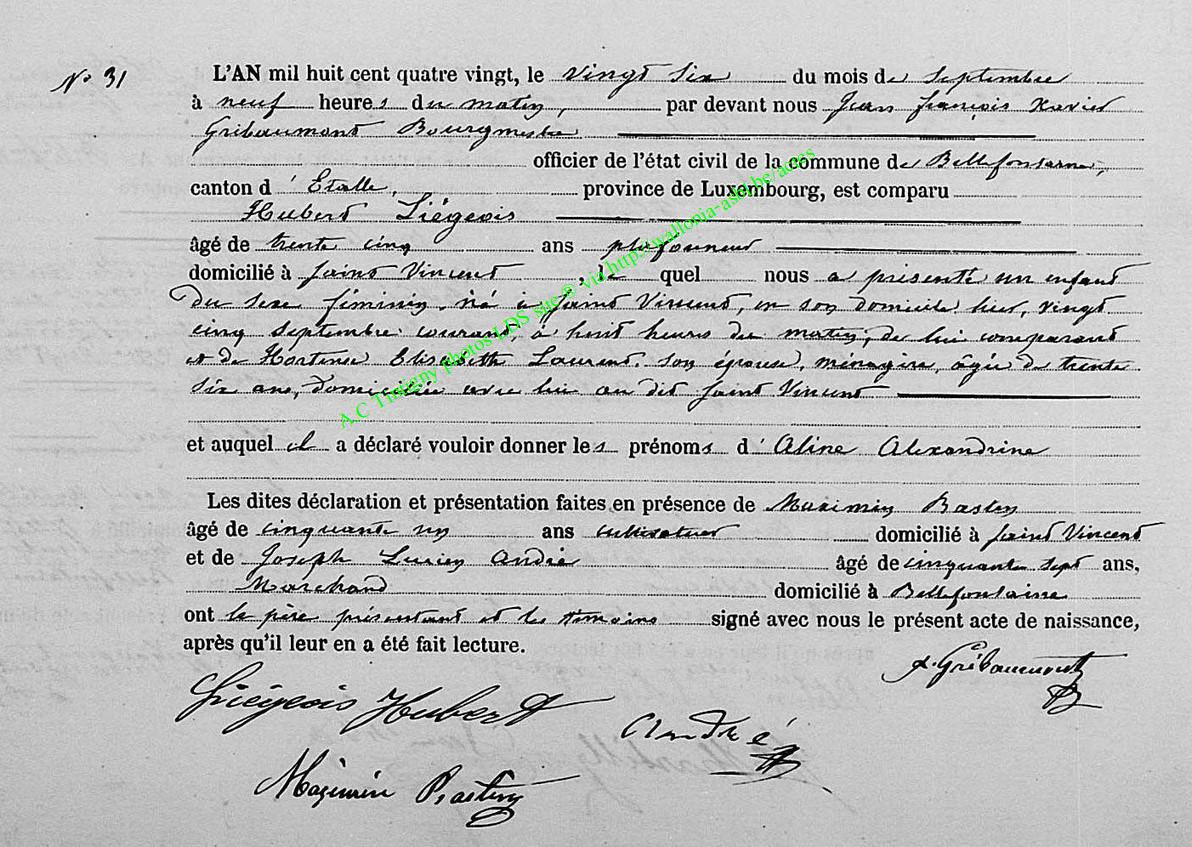 N° 31
L'AN mil huit cent quatre vingt, le vingt six du mois de septembre
à neuf heures du matin, par devant nous Jean françois Xavier
Gribaumont Bourgmestre
officier de l'état civil de la commune de Bellefontaine,
canton d'Etalle, province de Luxembourg, est comparu
Hubert Liégeois
âgé de trente cinq ans plafonneur
domicilié à Saint Vincent, le quel nous a présenté un enfant
du sexe féminin, né à Saint Vincent, en son domicile hier, vingt
cinq septembre courant, à huit heures du matin, de lui comparant
et de Hortense Elisabeth Laurent, son épouse, ménagère, âgée de trente
six ans, domiciliée avec lui au dit Saint Vincent
et auquel il a déclaré vouloir donner les prénoms d'Aline Alexandrine
Les dites déclaration et présentation faites en présence de Maximin Bastin
âgé de cinquante un ans cultivateur domicilié à Saint Vincent
et de Joseph Lucien André âgé de cinquante sept ans,
Marchand domicilié à Bellefontaine
ont le père présentant et les témoins signé avec nous le présent acte de naissance,
après qu'il leur en a été fait lecture.
x. Gribaumont
Liégeois Hubert
André
Maximin Bastin
A.C Tintigny photos LDS sur © via http://wallonia-asbl.be/actes